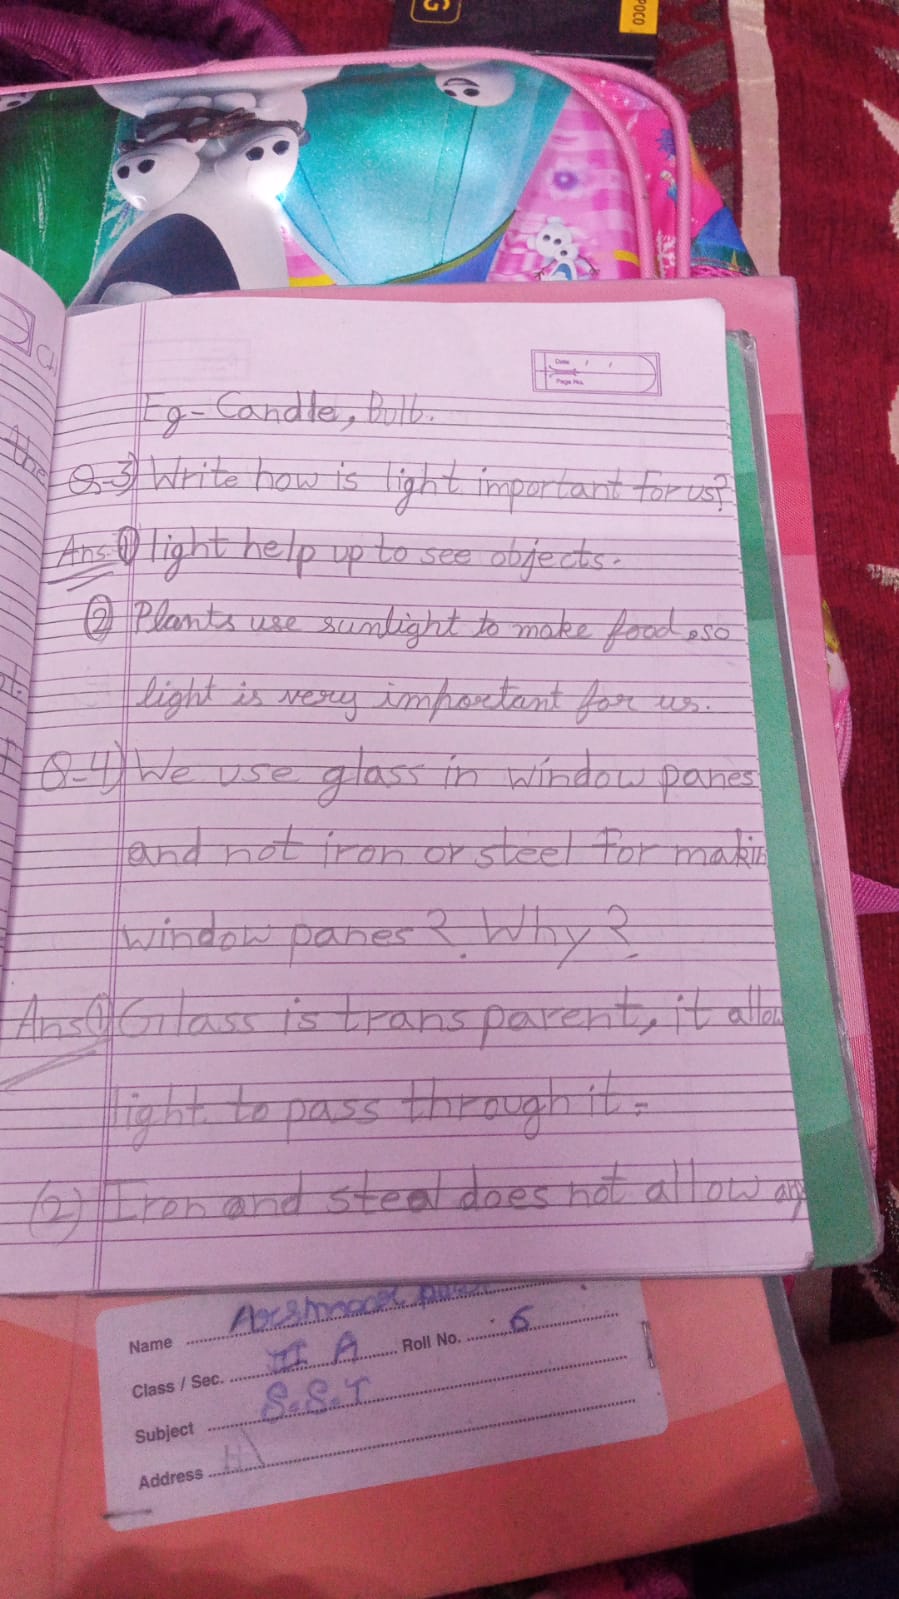 POCO
G
Date / /
Page No.
Eg - Candle, Bulb.
the
Q-3) Write how is light important for us?
Ans- ① light help up to see objects.
② Plants use sunlight to make food, so
light is very important for us.
Q-4) We use glass in window panes
and not iron or steel for makin
window panes? Why?
Ans ① Glass is transparent, it allow
light to pass through it.
(2) Iron and steel does not allow any
Name
Class / Sec. III A Roll No. 6
Subject S.S.T
Address